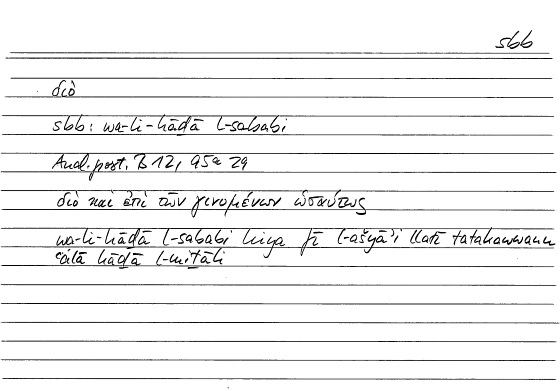 sbb
διὸ
sbb: wa-li-hāḏā l-sababi
Anal. post. B 12, 95a 29
διὸ καὶ ἐπὶ τῶν γινομένων ὡσαύτως
wa-li-hāḏā l-sababi hiya fī l-ašyāʾi llatī tatakawwanu
ʿalā hāḏā l-miṯāli